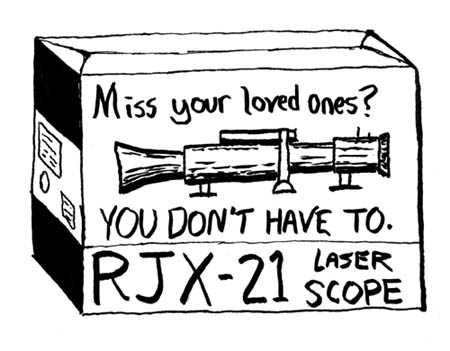 Miss your loved ones?
YOU DON'T HAVE TO.
RJX-21 LASER SCOPE